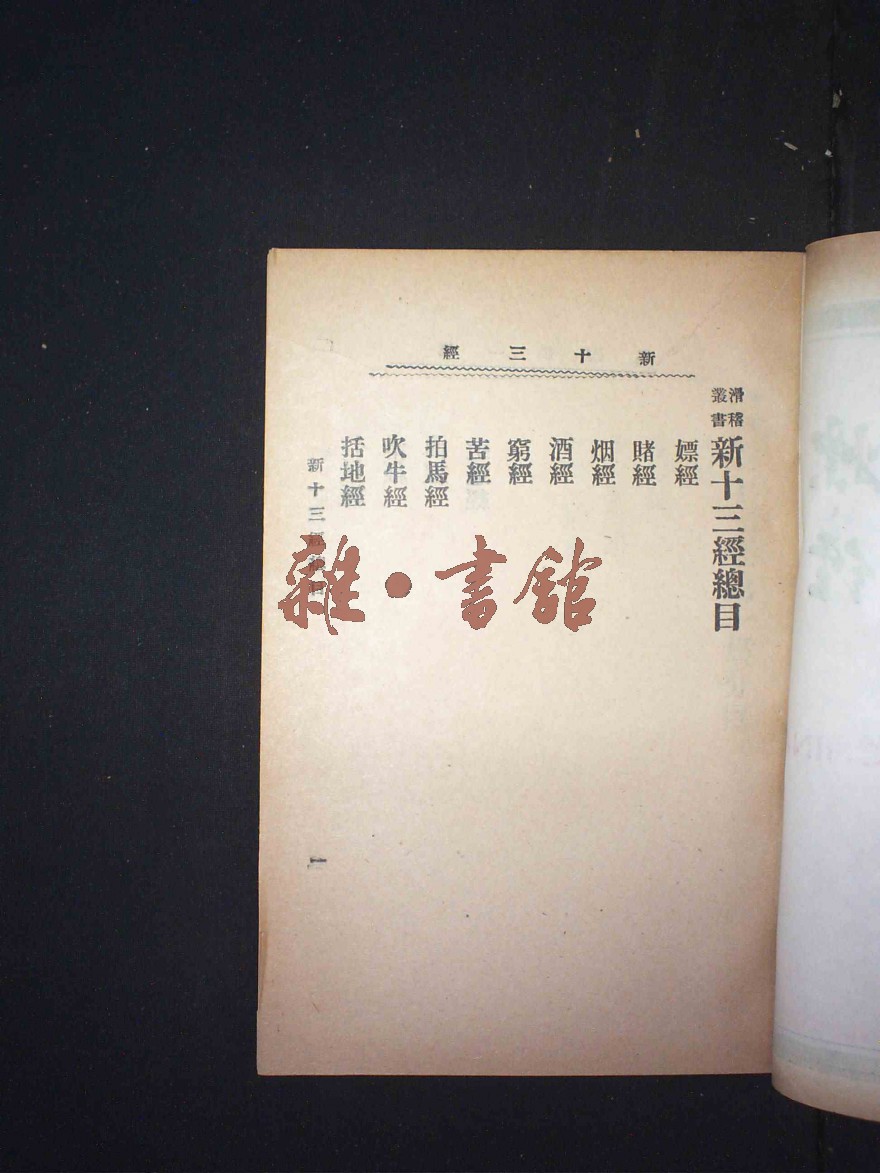 新十三經
滑稽
叢書
新十三經總目
嫖經
賭經
烟經
酒經
窮經
苦經
拍馬經
吹牛經
括地經
新十三經總目
一
雜·書館